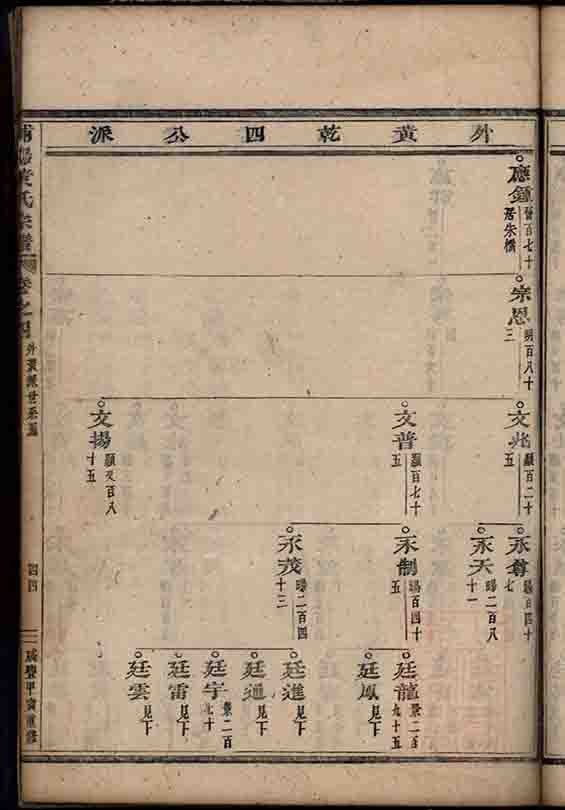 外黄乾四公派
應鍾 晉百七十
居朱橋
宗恩 明百八十
三
文兆 顯百二十
五
文普 顯百七十
五
文揚 顯又百八
十五
永尊 賜百四十
七
永天 賜二百八
十一
永制 賜百四十
五
永茂 賜二百四
十三
廷龍 景二百
九十五
廷鳳 見下
廷進 見下
廷通 見下
廷宇 景二百
七十
廷雷 見下
廷雲 見下
氏宗譜
卷之四
外黄派世系圖
四四
咸豐甲寅重修